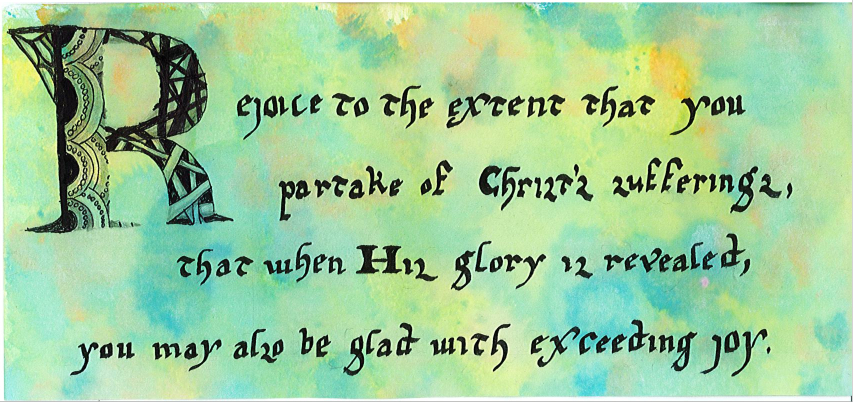 Rejoice to the extent that you
partake of Christ's sufferings,
that when His glory is revealed,
you may also be glad with exceeding joy.